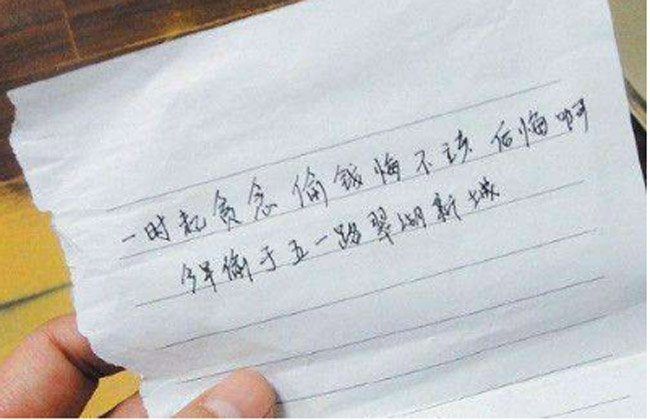 一时起贪念偷钱悔不该后悔啊
今年偷于五一路翠湖新城